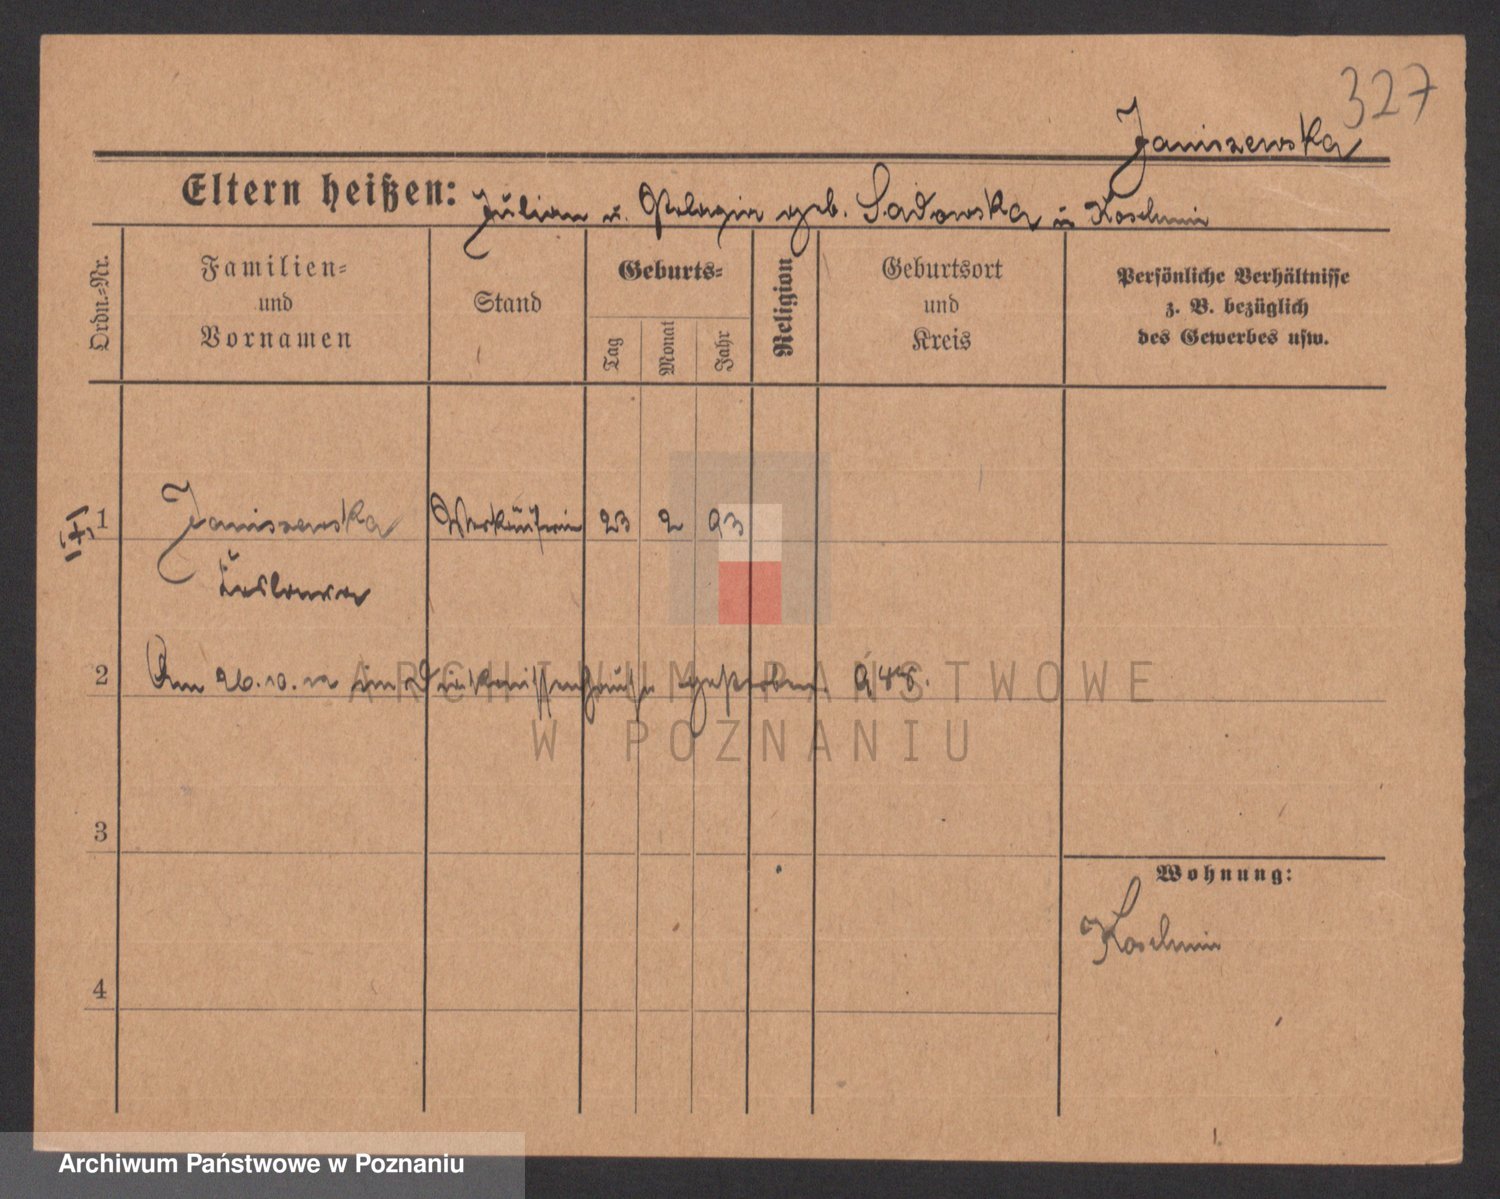 327
Janiszewska
Eltern heißen: Julian u. Pelagia geb. Sadowska in Koschmin
Ordn.-Nr.
Familien-
und
Vornamen
Stand
Geburts-
Tag
Monat
Jahr
Religion
Geburtsort
und
Kreis
Persönliche Verhältnisse
z. B. bezüglich
des Gewerbes usw.
1 Janiszewska Verkäuferin 23 2 93
2 Am 26.10. im Diakonissenhause gestorben
ARCHIWUM PAŃSTWOWE
W POZNANIU
3
Wohnung:
Koschmin
4
Archiwum Państwowe w Poznaniu